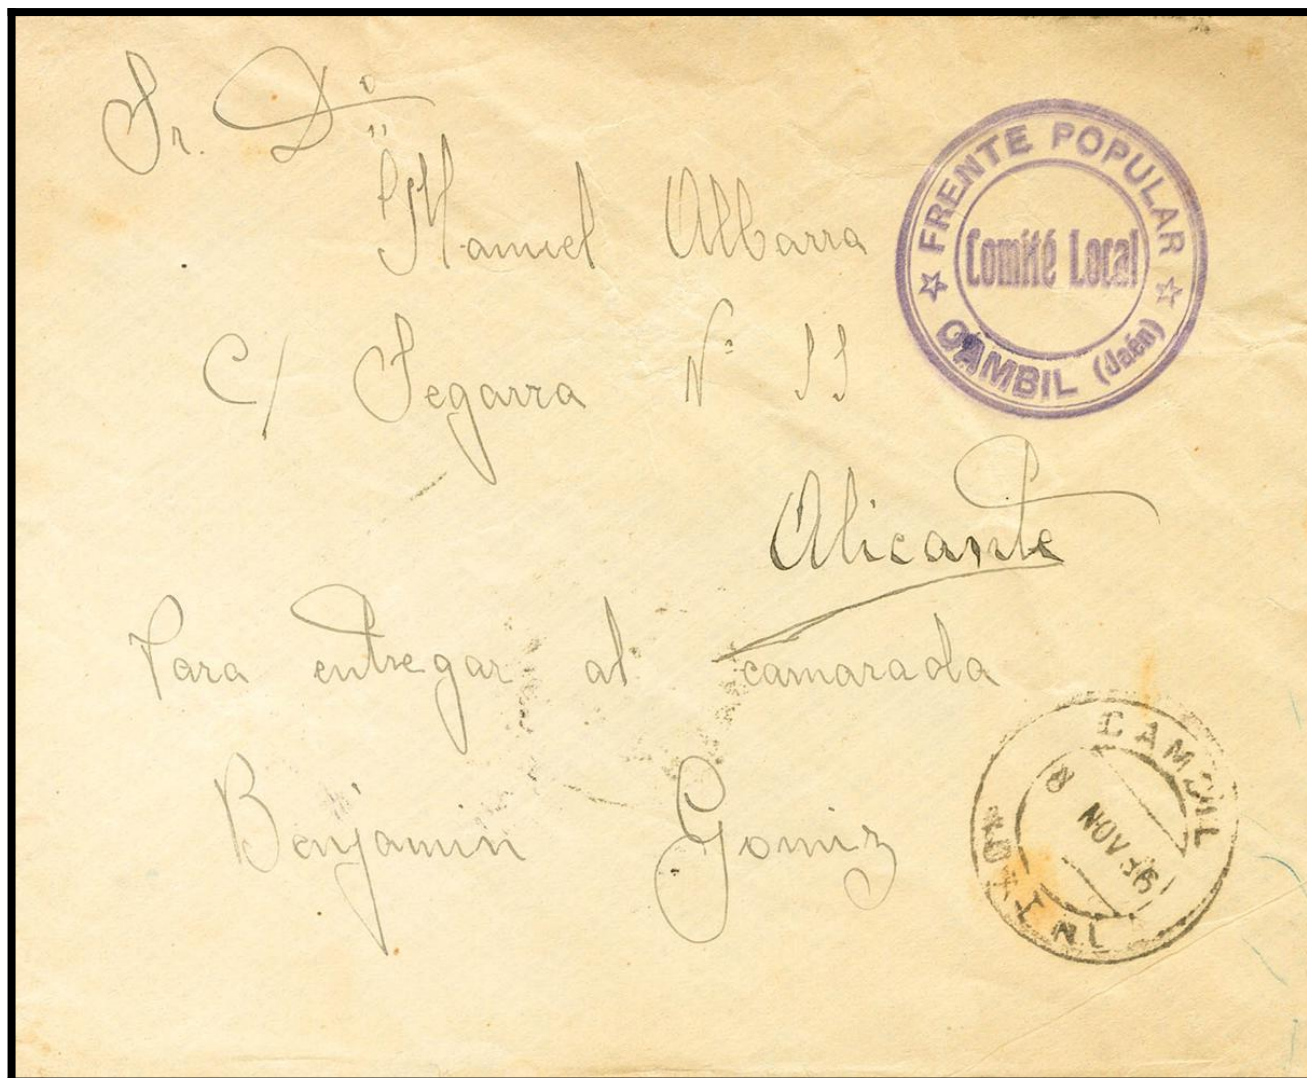 Sr. Dº
Manuel Albarra
C/ Segarra Nº 33
Alicante
Para entregar al camarada
Benjamin Gomiz
★ FRENTE POPULAR ★
Comité Local
CAMBIL (Jaén)
CAMBIL
8 NOV 36